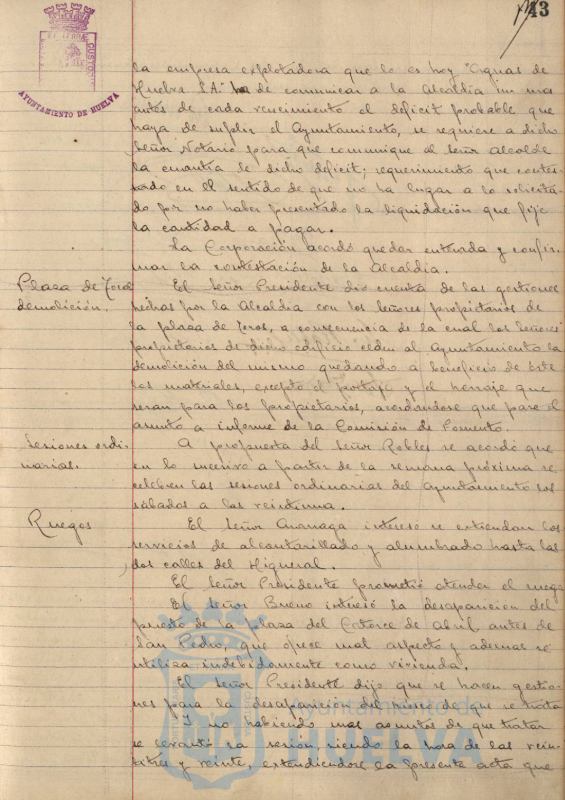 43
AYUNTAMIENTO DE HUELVA
la empresa explotadora que lo es hoy "Aguas de
Huelva S.A." ha de comunicar a la Alcaldía un mes
antes de cada vencimiento el deficit probable que
haya de suplir el Ayuntamiento, se requiere a dicho
Señor Notario para que comunique al Señor Alcalde
la cuantía de dicho deficit; requerimiento que contes-
tado en el sentido de que no ha lugar a lo solicita-
do por no haber presentado la liquidación que fije
la cantidad a pagar.
La Corporación acordó quedar enterada y confir-
mar la contestación de la Alcaldía.
Plaza de Toros
demolición.
El Señor Presidente dio cuenta de las gestiones
hechas por la Alcaldía con los señores propietarios de
la plaza de toros, a consecuencia de la cual los señores
propietarios de dicho edificio ceden al Ayuntamiento la
demolición del mismo quedando a beneficio de éste
los materiales, excepto el y el herraje que
seran para los propietarios, acordándose que pase el
asunto a informe de la Comisión de Fomento.
Sesiones ordi-
narias.
A propuesta del Señor Robles se acordó que
en lo sucesivo a partir de la semana próxima se
celebren las sesiones ordinarias del Ayuntamiento los
sábados a las veintiuna.
Ruegos
El Señor interesó se extiendan los
servicios de alcantarillado y alumbrado hasta las
dos calles del Higueral.
El Señor Presidente prometió atender el ruego
El Señor Bueno interesó la desaparicion del
puesto de la plaza del Catorce de Abril, antes de
San Pedro, que ofrece mal aspecto y ademas se
utiliza indebidamente como vivienda.
El Señor Presidente dijo que se hacen gestio-
nes para la desaparición del mismo de que se trata
Y no habiendo mas asuntos de que tratar
se levantó la sesión, siendo la hora de las vein-
titrés y veinte, extendiendose la presente acta que
Ayuntamiento de
HUELVA